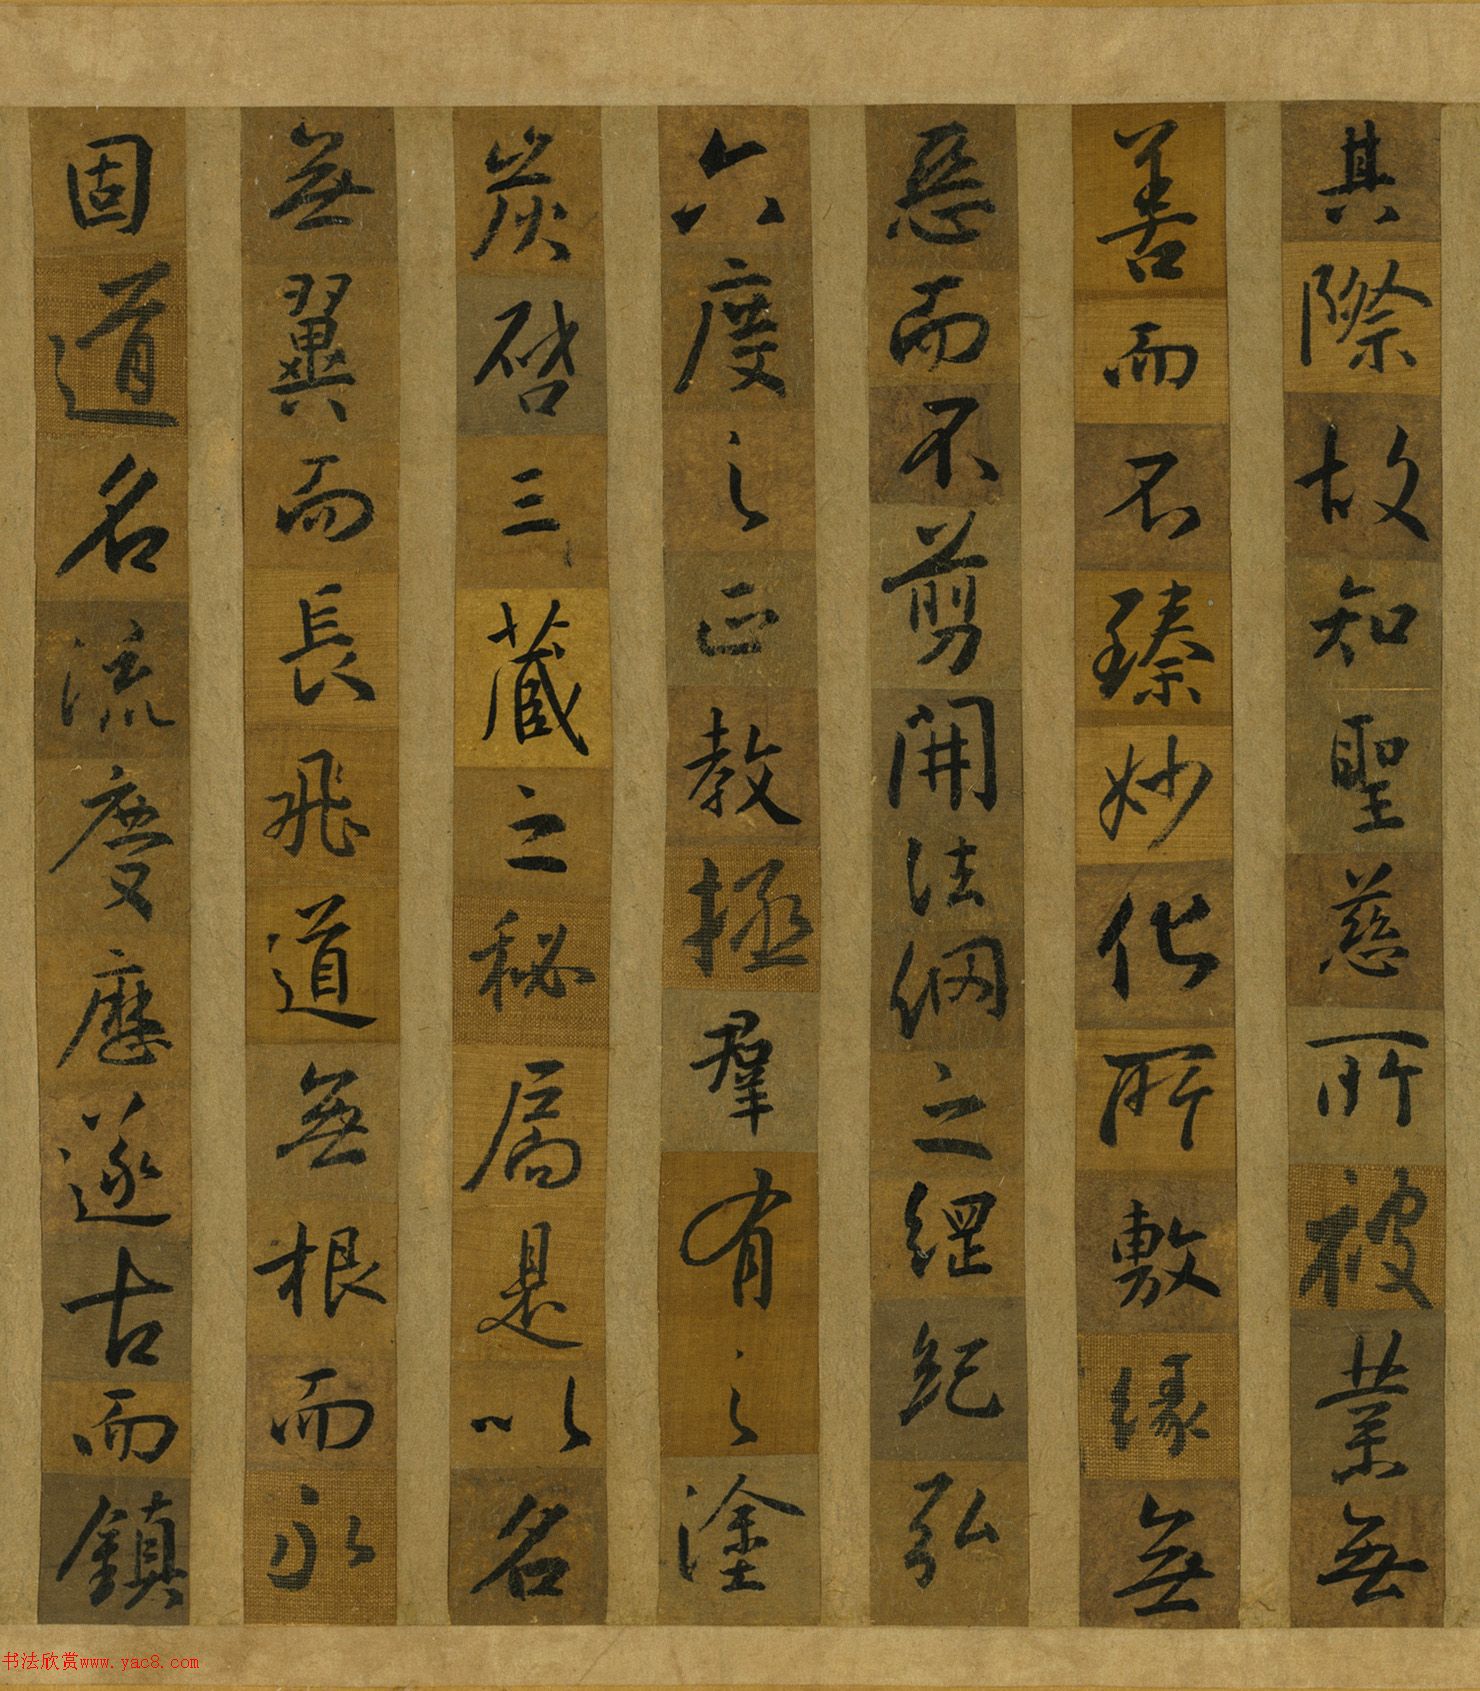 其際故知聖慈所被業無
善而不臻妙化所敷緣無
惡而不剪開法網之綱紀弘
六度之正教拯群有之塗
炭啓三藏之秘扃是以名
無翼而長飛道無根而永
固道名流慶歷遂古而鎮
书法欣赏www.yac8.com